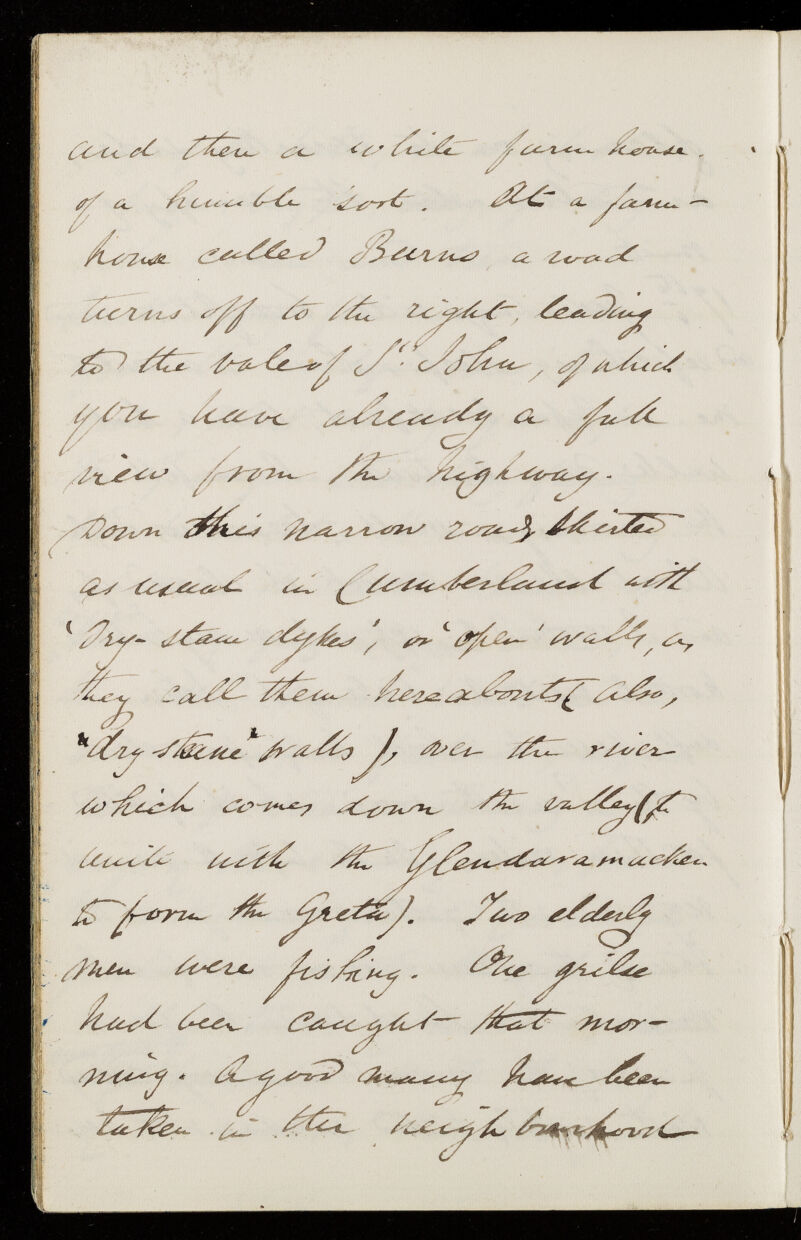 and then a white farm house
of a humble sort. At a farm-
house called Burns, a road
turns off to the right, leading
to the vale of St. John, of which
you have already a full
view from the highway.
Down this narrow road, skirted
as usual in Cumberland with
'Dry-stane dykes', or 'open' walls, as
they call them hereabouts (also,
"dry-stane" walls), over the river
which comes down the valley (to
unite with the Glendaramacken
to form the Greta). Two elderly
men were fishing. One grilse
had been caught that mor-
ning. A good many have been
taken in the neighbourhood